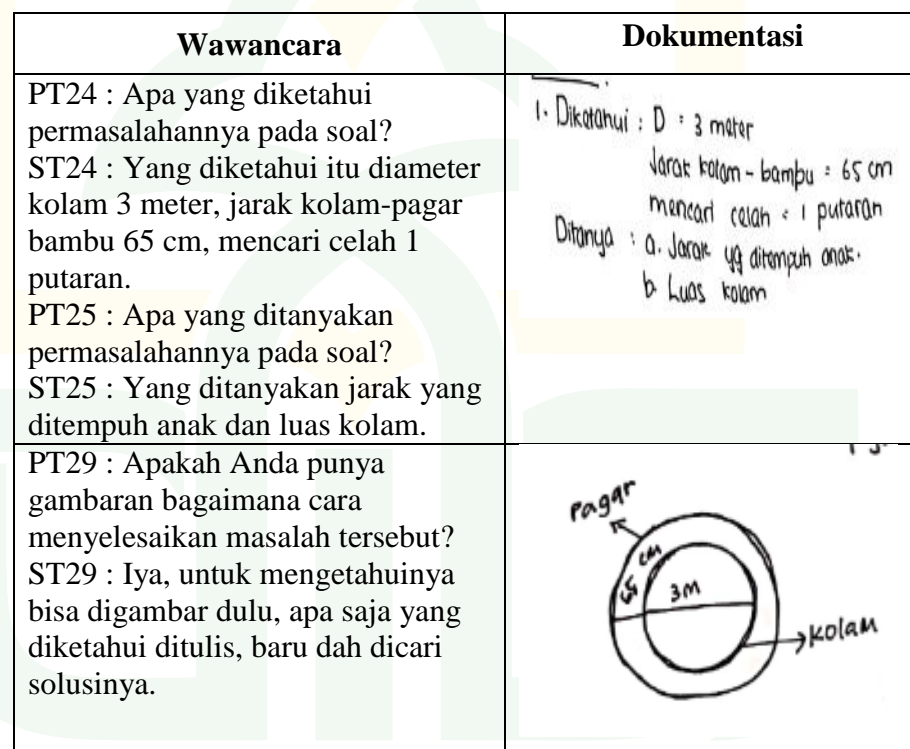 Wawancara
Dokumentasi
PT24 : Apa yang diketahui
permasalahannya pada soal?
ST24 : Yang diketahui itu diameter
kolam 3 meter, jarak kolam-pagar
bambu 65 cm, mencari celah 1
putaran.
PT25 : Apa yang ditanyakan
permasalahannya pada soal?
ST25 : Yang ditanyakan jarak yang
ditempuh anak dan luas kolam.
1. Diketahui : D = 3 meter
Jarak kolam - bambu = 65 cm
mencari celah = 1 putaran
Ditanya : a. Jarak yg ditempuh anak.
b. Luas kolam
PT29 : Apakah Anda punya
gambaran bagaimana cara
menyelesaikan masalah tersebut?
ST29 : Iya, untuk mengetahuinya
bisa digambar dulu, apa saja yang
diketahui ditulis, baru dah dicari
solusinya.
Pagar
65 cm
3M
kolam